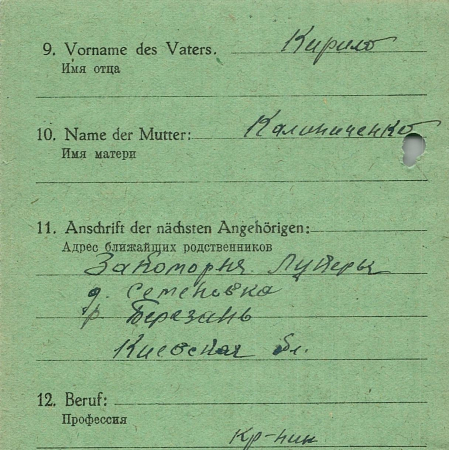 9. Vorname des Vaters. Кирило
Имя отца
10. Name der Mutter: Калониченко
Имя матери
11. Anschrift der nächsten Angehörigen:
Адрес ближайщих родственников
д. Семеновка
р Березань
Киевская бл.
12. Beruf:
Профессия
кр-ник